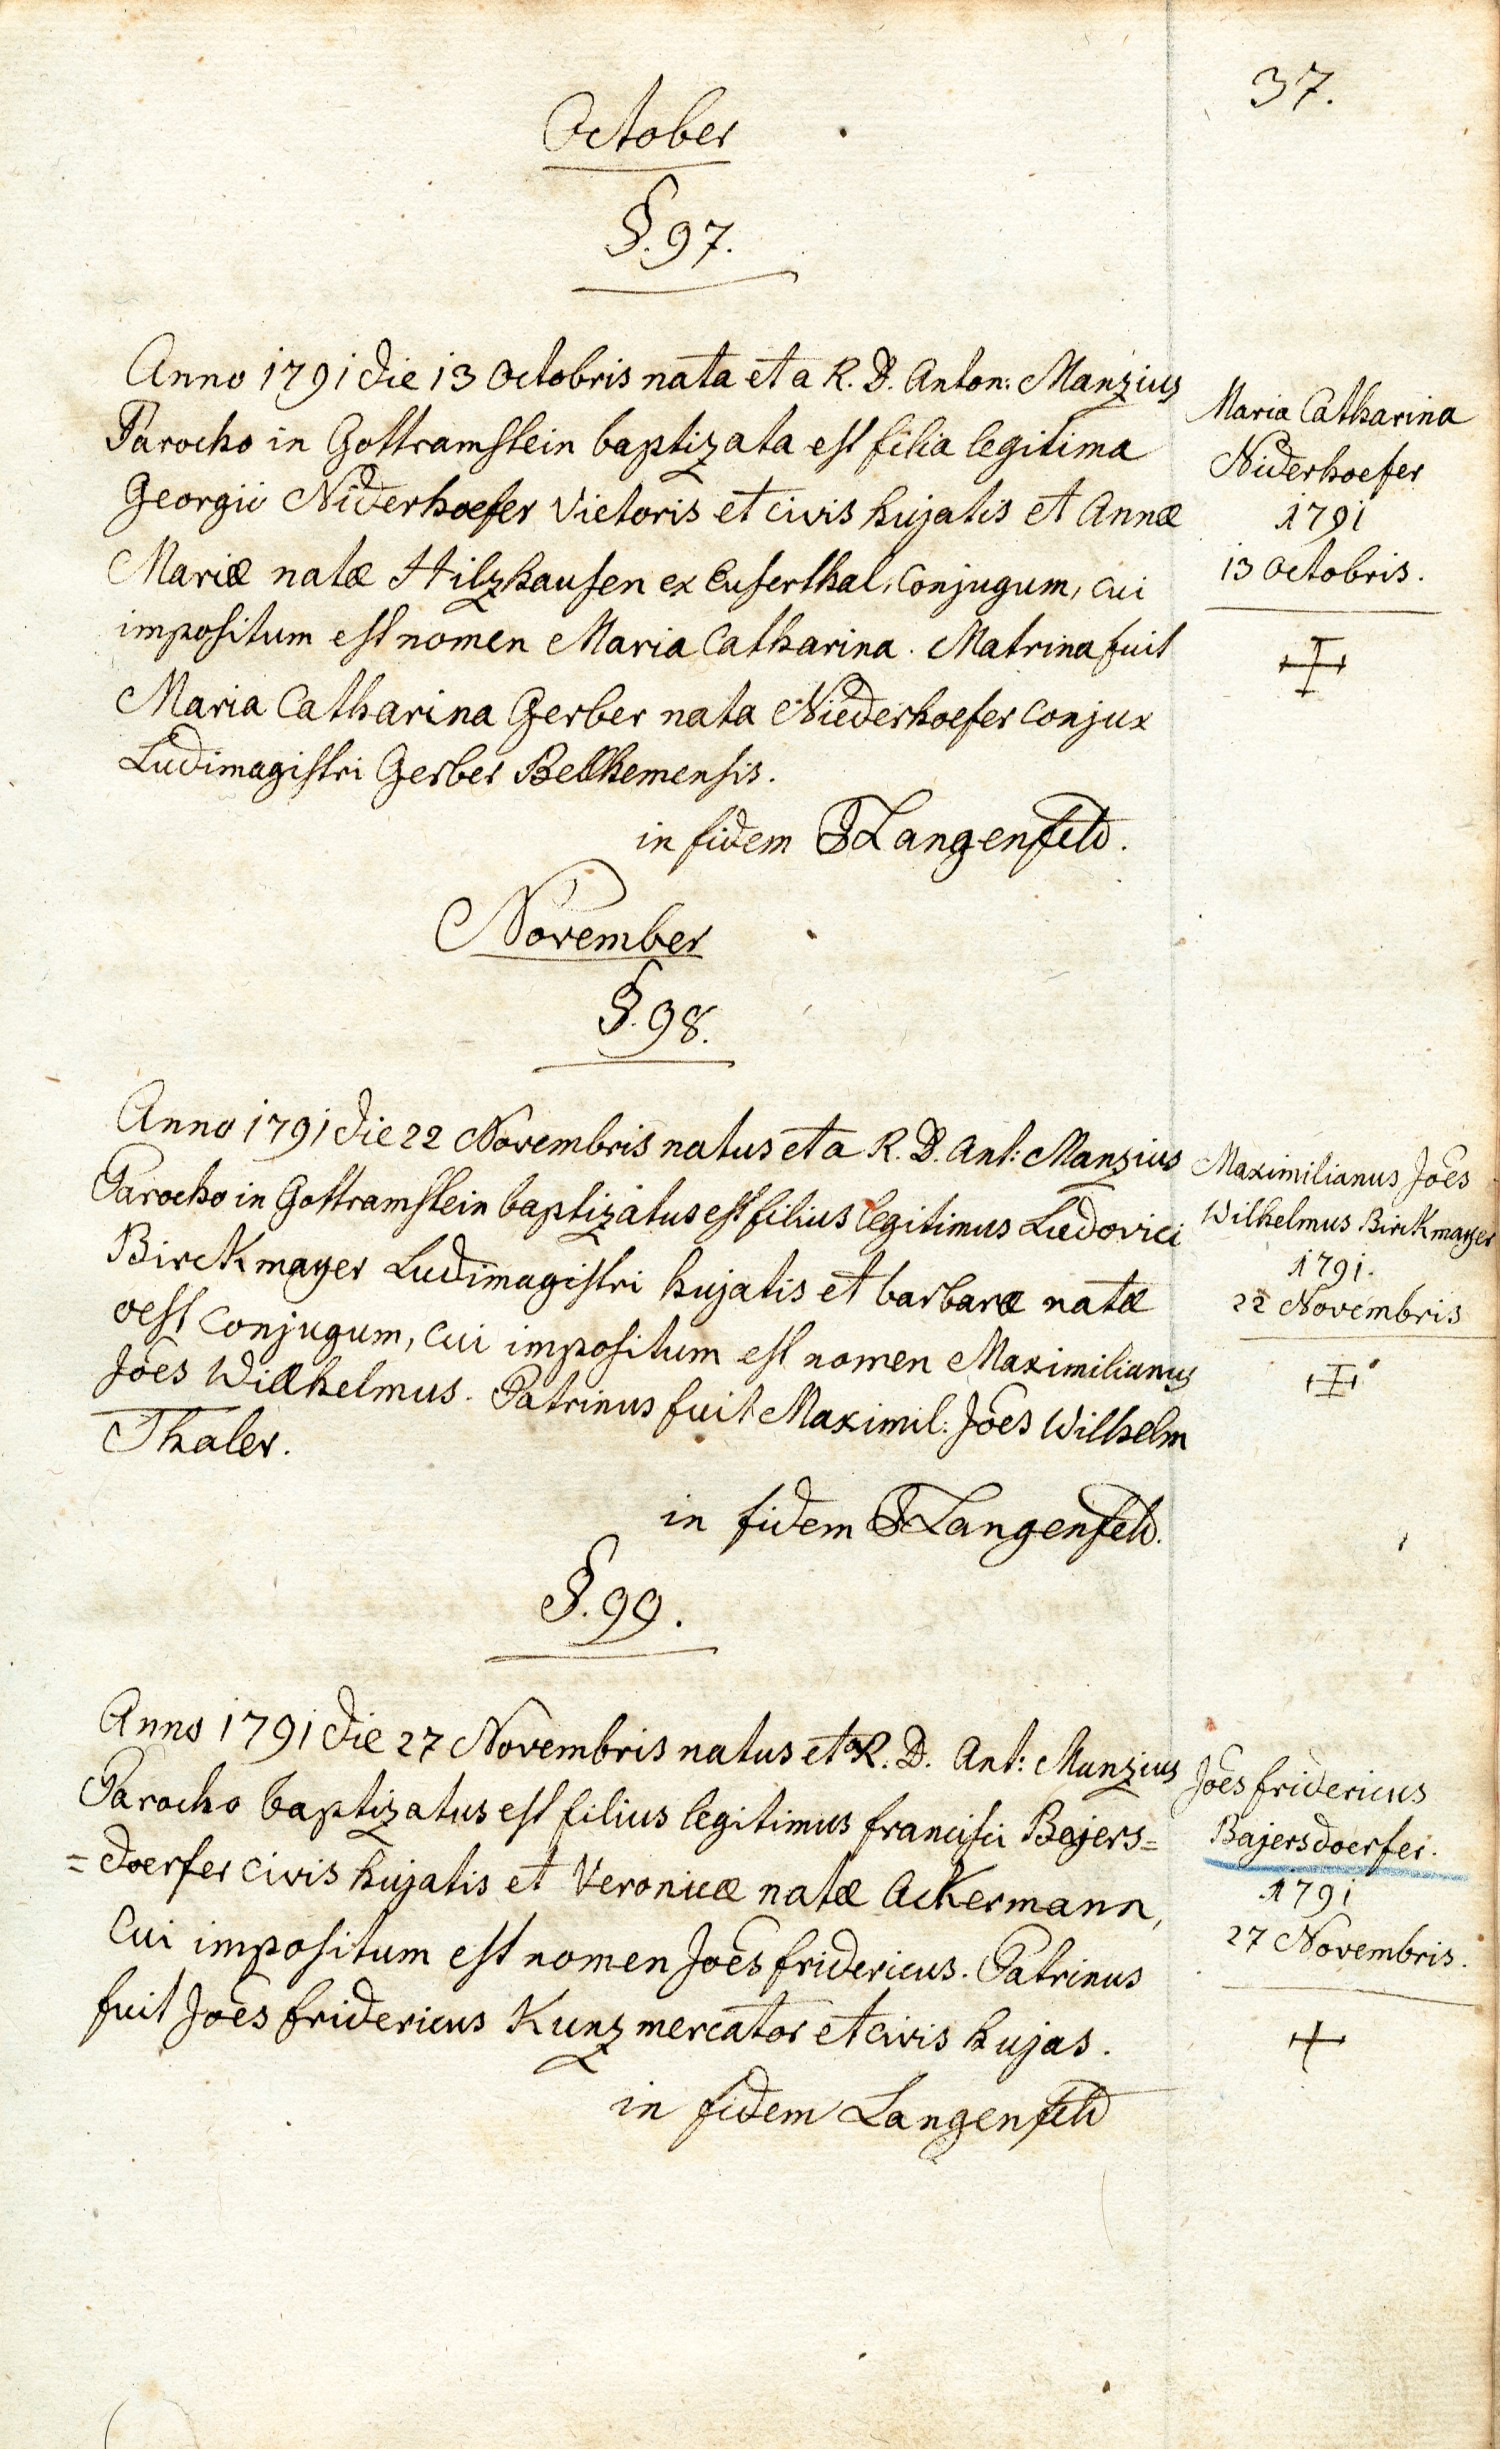 37.
October
§. 97.
Anno 1791 die 13 Octobris nata et a R. D. Anton: Manzius
Parocho in Gottramstein baptizata est filia legitima
Georgii Niderhoefer Vietoris et civis hujatis et Annæ
Mariæ natæ Hilzhausen ex Euserthal, Conjugum, cui
impositum est nomen Maria Catharina. Matrina fuit
Maria Catharina Gerber nata Niederhoefer Conjux
Ludimagistri Gerber Bellhemensis.
in fidem Langenfeld.
Maria Catharina
Niderhoefer
1791
13 Octobris.
November
§. 98.
Anno 1791 die 22 Novembris natus et a R. D. Ant: Manzius
Parocho in Gottramstein baptizatus est filius legitimus Ludovici
Birckmayer Ludimagistri hujatis et barbaræ natæ
oest Conjugum, cui impositum est nomen Maximilianus
Joēs Willhelmus. Patrinus fuit Maximil: Joēs Wilhelm
Thaler.
in fidem Langenfeld.
Maximilianus Joēs
Wilhelmus Birckmayer
1791.
22 Novembris
§. 99.
Anno 1791 die 27 Novembris natus et a R. D. Ant: Manzius
Parocho baptizatus est filius legitimus francisci Bejers=
=doerfer civis hujatis et Veronicæ natæ Ackermann,
Cui impositum est nomen Joēs fridericus. Patrinus
fuit Joēs fridericus Kunz mercator et civis hujas.
in fidem Langenfeld
Joēs fridericus
Bajersdoerfer.
1791
27 Novembris.